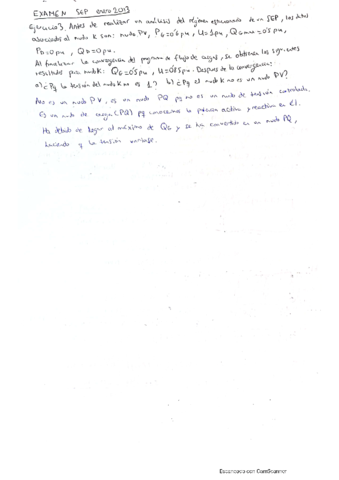 EXAMEN SEP enero 2013
Ejercicio 3. Antes de realizar un análisis del régimen estacionario de un SEP, los datos
asociados al nudo k son: nudo PV, PG=0'5 pu, U=1 pu, QGmax=0'5 pu,
PD=0 pu, QD=0 pu.
Al finalizar la convergencia del programa de flujo de cargas, se obtienen los siguientes
resultados para nudo k: QG=0'5 pu, U=0'85 pu. Después de la convergencia:
a) ¿Pq la tensión del nudo k no es 1? b) ¿Pq el nudo k no es un nudo PV?
No es un nudo PV, es un nudo PQ pq no es un nudo de tensión controlada.
Es un nudo de carga (PQ) pq conocemos la potencia activa y reactiva en él.
Ha debido de llegar al máximo de QG y se ha convertido en un nudo PQ,
haciendo q la tensión
Escaneado con CamScanner